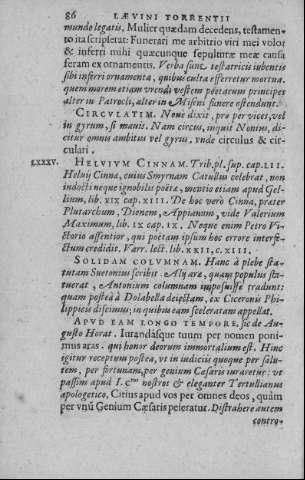 86 LÆVINI TORRENTII
mundo legatis. Mulier quædam decedens, testamen-
to ita scripserat: Funerari me arbitrio viri mei volo:
& inferri mihi quæcunque sepulturæ meæ causa
feram ex ornamentis. Verba sunt testatricis iubentis
sibi inferri ornamenta, quibus culta efferretur mortua.
quem morem etiam vrendi vestem poëtarum principes
alter in Patrocli, alter in Miseni funere ostendunt.
CIRCVLATIM. Noui dixit, pro per vices, vel
in gyrum, si mauis. Nam circus, inquit Nonius, di-
citur omnis ambitus vel gyrus. vnde circulus & cir-
culari.
LXXXV. HELVIVM CINNAM. Trib. pl. sup. cap. LII.
Heluij Cinnæ, cuius Smyrnam Catullus celebrat, non
indocti neque ignobilis poëtæ, mentio etiam apud Gel-
lium, lib. XIX cap. XIII. De hoc verò Cinna, præter
Plutarchum, Dionem, Appianum, vide Valerium
Maximum, lib. IX cap. IX. Neque enim Petro Vi-
ctorio assentior, qui poëtam ipsum hoc errore interfe-
ctum credidit. Var. lect. lib. XXII, c. XIII.
SOLIDAM COLVMNAM. Hanc à plebe sta-
tutam Suetonius scribit. Alij aræ, quam populus sta-
tuerat, Antonium columnam imposuisse tradunt:
quam posteà à Dolabella deiectam, ex Ciceronis Phi-
lippicis discimus; in quibus eam sceleratam appellat.
APVD EAM LONGO TEMPORE. sic de Au-
gusto Horat. Iurandasque tuum per nomen poni-
mus aras. qui honor deorum immortalium est. Hinc
igitur receptum postea, vt in iudiciis quoque per salu-
tem, per fortunam, per genium Cæsaris iuraretur: vt
passim apud I. C^tos nostros & eleganter Tertullianus
apologetico, Citius apud vos per omnes deos, quàm
per vnũ Genium Cæsaris peieratur. Distrahere autem
contro-